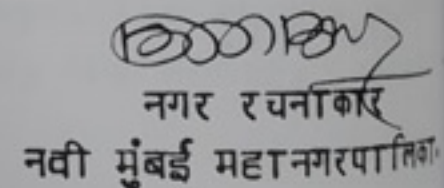 नगर रचनाकार
नवी मुंबई महानगरपालिका.